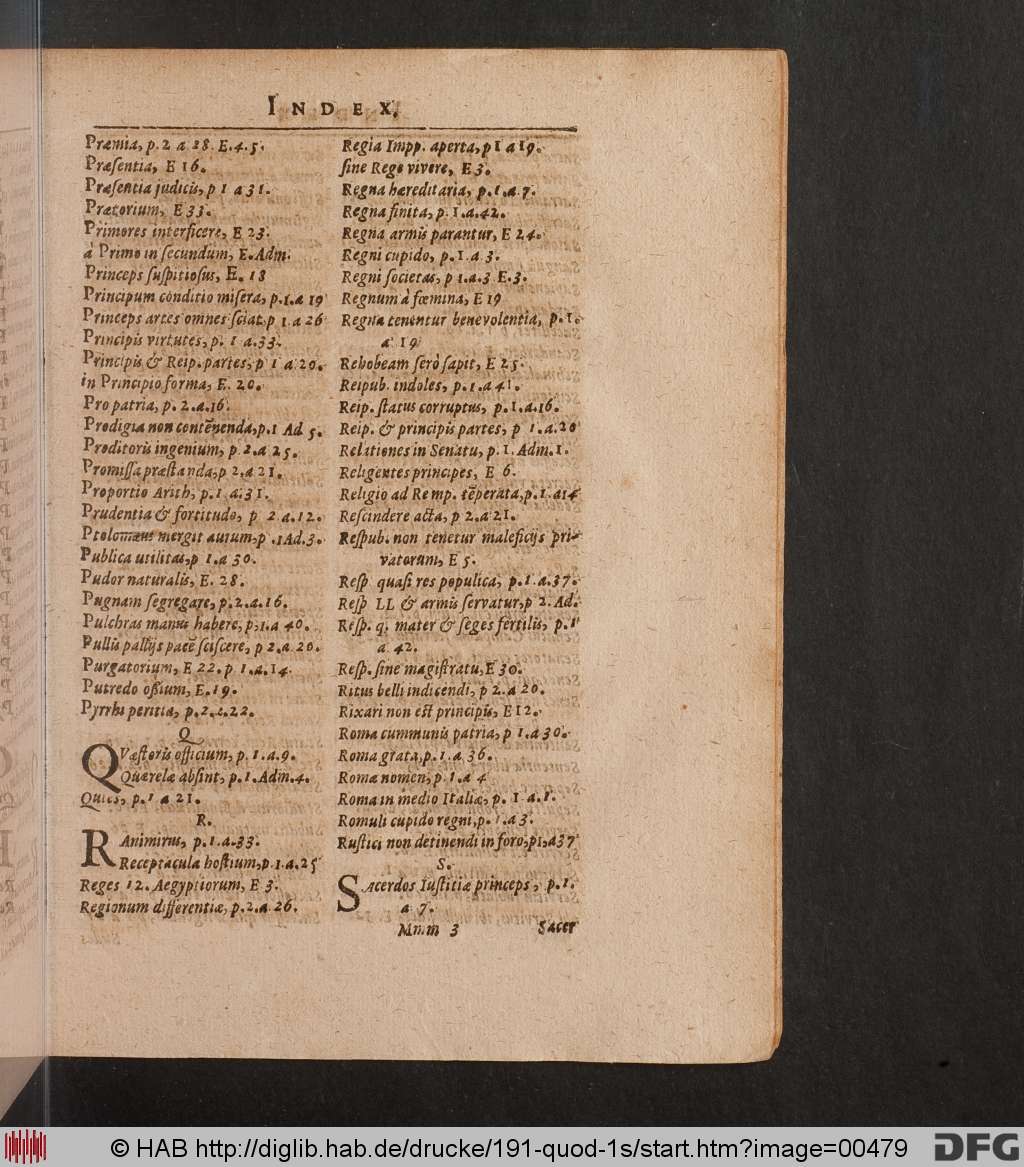 INDEX.
Præmia, p. 2 a 28. E. 4. 5.
Præſentia, E 16.
Præſentia judicis, p 1 a 31.
Prætorium, E 33.
Primores interficere, E 23.
à Primo in ſecundum, E. Adm.
Princeps ſuſpitioſus, E. 18
Principum conditio miſera, p. 1. a 19
Princeps artes omnes ſciat, p 1 a 26
Principis virtutes, p. 1 a. 33.
Principis & Reip. partes, p 1 a 20.
in Principio forma, E. 20.
Pro patria, p. 2. a. 16.
Prodigia non contẽnenda, p. 1 Ad 5.
Proditoris ingenium, p. 2. a 25.
Promiſſa præſtanda, p 2. a 21.
Proportio Arith, p. 1 a. 31.
Prudentia & fortitudo, p 2 a. 12.
Ptolomæus mergit aurum, p. 1 Ad. 3.
Publica utilitas, p 1. a 30.
Pudor naturalis, E. 28.
Pugnam ſegregare, p. 2. a. 16.
Pulchras manus habere, p. 1. a 40.
Pullis pallijs pacẽ ſciſcere, p 2. a. 20.
Purgatorium, E 22. p 1. a. 14.
Putredo oſſium, E. 19.
Pyrrhi peritia, p. 2. a. 22.
Q
QVæſtoris officium, p. 1. a. 9.
Quærelæ abſint, p. 1. Adm. 4.
Quies, p. 1 a 21.
R.
RAnimirus, p. 1. a. 33.
Receptacula hoſtium, p. 1. a. 25
Reges 12. Aegyptiorum, E 3.
Regionum differentiæ, p. 2. a 26.
Regia Impp. aperta, p 1 a 19.
ſine Rege vivere, E 3.
Regna hæreditaria, p. 1. a. 7.
Regna finita, p. 1. a. 42.
Regna armis parantur, E 24.
Regni cupido, p. 1. a 3.
Regni ſocietas, p 1. a. 3 E. 3.
Regnum à fœmina, E 19
Regna tenentur benevolentia, p. 1.
a 19
Rehobeam ſerò ſapit, E 25.
Reipub. indoles, p. 1. a 41.
Reip. ſtatus corruptus, p. 1. a. 16.
Reip. & principis partes, p 1. a. 20
Relationes in Senatu, p. 1. Adm. 1.
Religentes principes, E 6.
Religio ad Remp. tẽperata, p. 1. a 14
Reſcindere acta, p 2. a 21.
Reſpub. non tenetur maleficijs pri-
vatorum, E 5.
Reſp quaſi res populica, p. 1. a. 37.
Reſp LL & armis ſervatur, p 2. Ad.
Reſp. q. mater & ſeges fertilis, p. 1
a. 42.
Reſp. ſine magiſtratu, E 30.
Ritus belli indicendi, p 2. a 20.
Rixari non eſt principis, E 12.
Roma cummunis patria, p 1. a 30.
Roma grata, p. 1. a 36.
Romæ nomen, p. 1. a 4
Roma in medio Italiæ, p. 1 a. 1.
Romuli cupido regni, p. 1. a 3.
Ruſtici non detinendi in foro, p 1. a 37
S.
SAcerdos Iuſtitiæ princeps, p. 1.
a 7.
Mmm 3 Sacer
© HAB http://diglib.hab.de/drucke/191-quod-1s/start.htm?image=00479
DFG